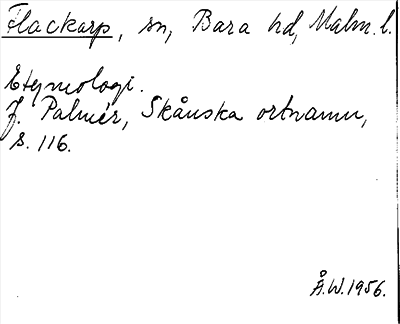 Flackarp, sn, Bara hd, Malm. l.
Etymologi.
J. Palmér, Skånska ortnamn,
s. 116.
Å.W. 1956.